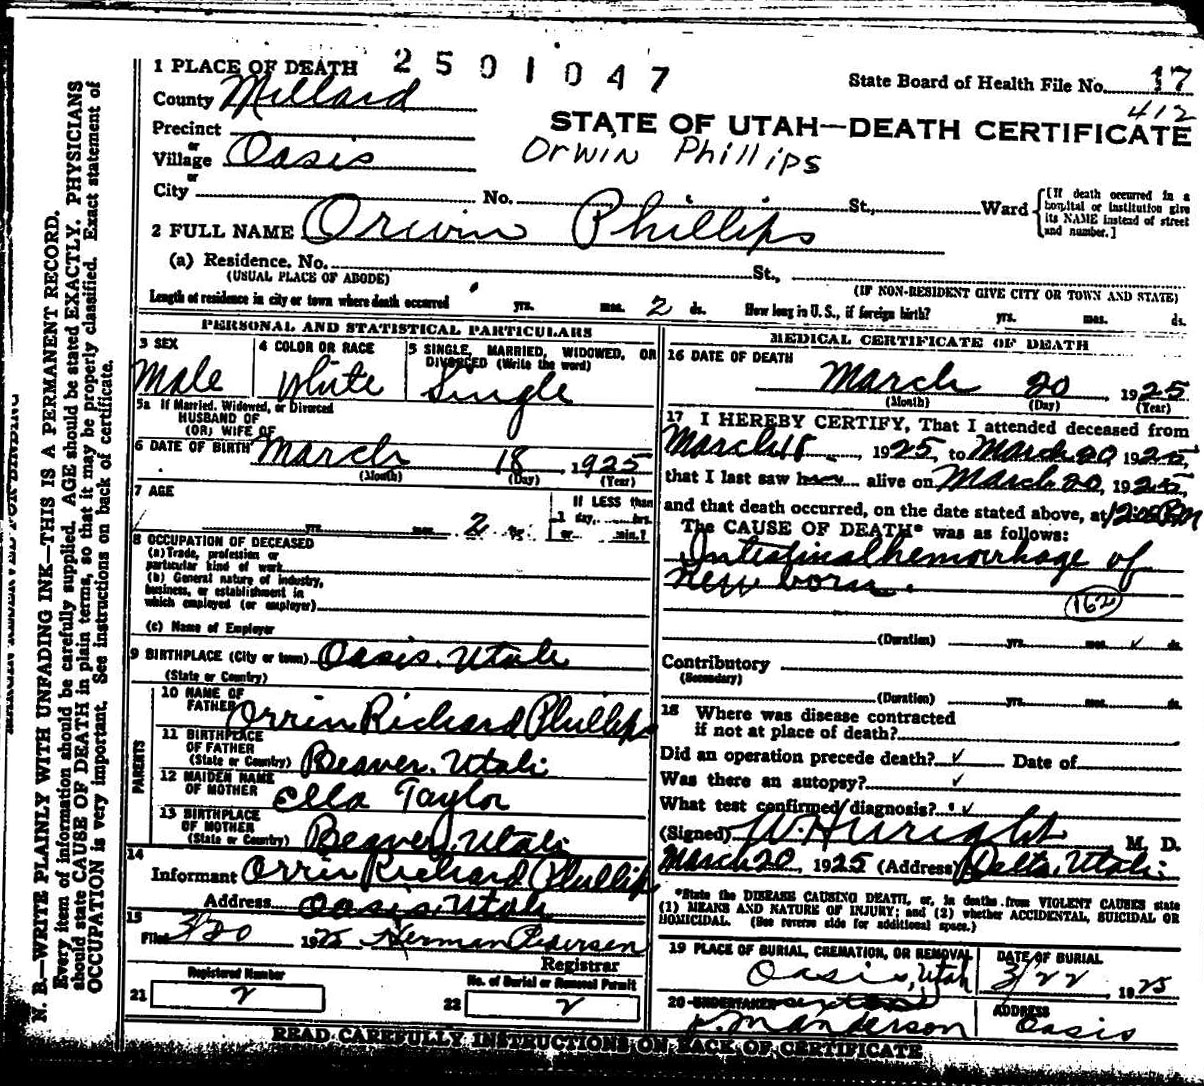 1 PLACE OF DEATH 2501047
State Board of Health File No. 17
412
County Millard
STATE OF UTAH—DEATH CERTIFICATE
Precinct
or
Village Oasis
Orwin Phillips
or
City No. St., Ward
[If death occurred in a hospital or institution give its NAME instead of street and number.]
2 FULL NAME Orwin Phillips
(a) Residence. No. St.,
(USUAL PLACE OF ABODE) (IF NON-RESIDENT GIVE CITY OR TOWN AND STATE)
Length of residence in city or town where death occurred yrs. mos. 2 ds. How long in U. S., if foreign birth? yrs. mos. ds.
PERSONAL AND STATISTICAL PARTICULARS
3 SEX Male
4 COLOR OR RACE White
5 SINGLE, MARRIED, WIDOWED, OR DIVORCED (Write the word) Single
5a If Married, Widowed, or Divorced
HUSBAND OF
(OR) WIFE OF
6 DATE OF BIRTH March 18, 1925
(Month) (Day) (Year)
7 AGE
If LESS than
yrs. mos. 2 ds. 1 day, hrs.
or min.?
8 OCCUPATION OF DECEASED
(a) Trade, profession or
particular kind of work
(b) General nature of industry,
business, or establishment in
which employed (or employer)
(c) Name of Employer
9 BIRTHPLACE (City or town) Oasis, Utah
(State or Country)
PARENTS
10 NAME OF
FATHER Orrin Richard Phillips
11 BIRTHPLACE
OF FATHER
(State or Country) Beaver, Utah
12 MAIDEN NAME
OF MOTHER Ella Taylor
13 BIRTHPLACE
OF MOTHER
(State or Country) Beaver, Utah
14
Informant Orrin Richard Phillips
Address Oasis, Utah
15
Filed 3/20 1925 Herman Pedersen
Registrar
Registered Number
21 2
No. of Burial or Removal Permit
22 2
MEDICAL CERTIFICATE OF DEATH
16 DATE OF DEATH
March 20, 1925
(Month) (Day) (Year)
17 I HEREBY CERTIFY, That I attended deceased from
March 18, 1925, to March 20, 1925,
that I last saw alive on March 20, 1925,
and that death occurred, on the date stated above, at
The CAUSE OF DEATH* was as follows:
Intestinal hemorrhage of
new born.
162
(Duration) yrs. mos. ds.
Contributory
(Secondary)
(Duration) yrs. mos. ds.
18 Where was disease contracted
if not at place of death?
Did an operation precede death? ✓ Date of
Was there an autopsy? ✓
What test confirmed diagnosis? ✓
(Signed) W. H. Wright M. D.
March 20, 1925 (Address) Delta, Utah
*State the DISEASE CAUSING DEATH, or, in deaths from VIOLENT CAUSES state
(1) MEANS AND NATURE OF INJURY; and (2) whether ACCIDENTAL, SUICIDAL OR
HOMICIDAL. (See reverse side for additional space.)
19 PLACE OF BURIAL, CREMATION, OR REMOVAL
Oasis, Utah
DATE OF BURIAL
3/22, 1925
20 UNDERTAKER
Anderson
ADDRESS
Oasis
READ CAREFULLY INSTRUCTIONS ON BACK OF CERTIFICATE
N. B.—WRITE PLAINLY WITH UNFADING INK—THIS IS A PERMANENT RECORD.
Every item of information should be carefully supplied. AGE should be stated EXACTLY. PHYSICIANS
should state CAUSE OF DEATH in plain terms, so that it may be properly classified. Exact statement of
OCCUPATION is very important. See instructions on back of certificate.